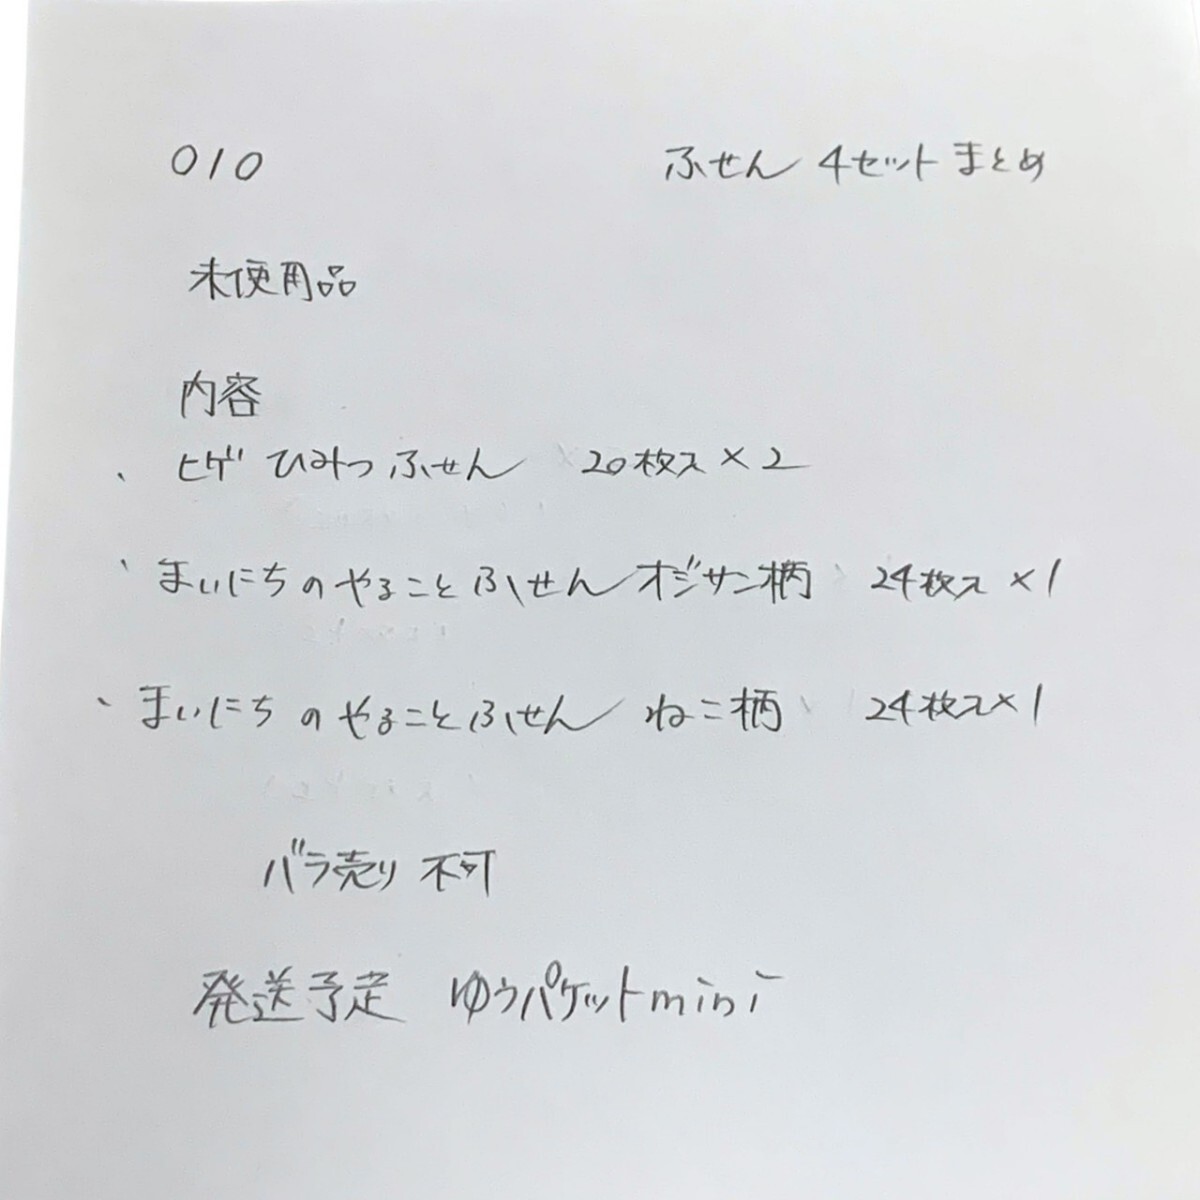 010 ふせん 4セット まとめ
未使用品
内容
、ヒゲ ひみつ ふせん 20枚入×2
、まいにちのやることふせん オジサン柄 24枚入×1
、まいにちのやることふせん ねこ柄 24枚入×1
バラ売り 不可
発送予定 ゆうパケットmini